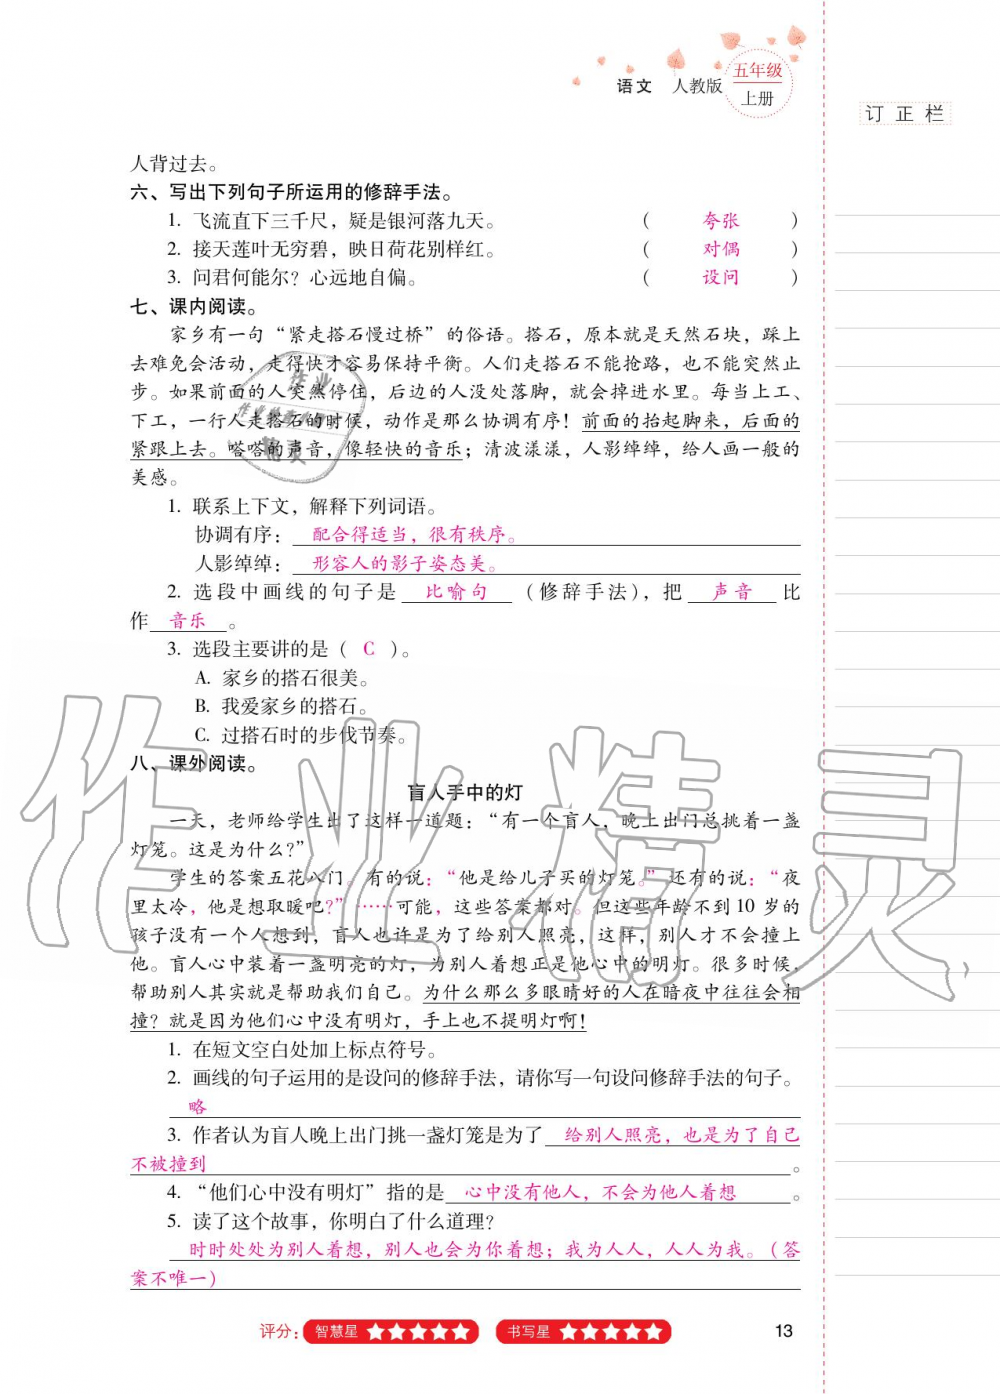 语文 人教版 五年级
上册
订正栏
人背过去。
六、写出下列句子所运用的修辞手法。
1. 飞流直下三千尺，疑是银河落九天。 （ 夸张 ）
2. 接天莲叶无穷碧，映日荷花别样红。 （ 对偶 ）
3. 问君何能尔？心远地自偏。 （ 设问 ）
七、课内阅读。
家乡有一句“紧走搭石慢过桥”的俗语。搭石，原本就是天然石块，踩上
去难免会活动，走得快才容易保持平衡。人们走搭石不能抢路，也不能突然止
步。如果前面的人突然停住，后边的人没处落脚，就会掉进水里。每当上工、
下工，一行人走搭石的时候，动作是那么协调有序！前面的抬起脚来，后面的
紧跟上去。嗒嗒的声音，像轻快的音乐；清波漾漾，人影绰绰，给人画一般的
美感。
1. 联系上下文，解释下列词语。
协调有序：配合得适当，很有秩序。
人影绰绰：形容人的影子姿态美。
2. 选段中画线的句子是 比喻句 （修辞手法），把 声音 比
作 音乐 。
3. 选段主要讲的是（ C ）。
A. 家乡的搭石很美。
B. 我爱家乡的搭石。
C. 过搭石时的步伐节奏。
八、课外阅读。
盲人手中的灯
一天，老师给学生出了这样一道题：“有一个盲人，晚上出门总挑着一盏
灯笼。这是为什么？”
学生的答案五花八门。有的说：“他是给儿子买的灯笼。”还有的说：“夜
里太冷，他是想取暖吧？”……可能，这些答案都对。但这些年龄不到 10 岁的
孩子没有一个人想到，盲人也许是为了给别人照亮，这样，别人才不会撞上
他。盲人心中装着一盏明亮的灯，为别人着想正是他心中的明灯。很多时候，
帮助别人其实就是帮助我们自己。为什么那么多眼睛好的人在暗夜中往往会相
撞？就是因为他们心中没有明灯，手上也不提明灯啊！
1. 在短文空白处加上标点符号。
2. 画线的句子运用的是设问的修辞手法，请你写一句设问修辞手法的句子。
略
3. 作者认为盲人晚上出门挑一盏灯笼是为了 给别人照亮，也是为了自己
不被撞到 。
4. “他们心中没有明灯”指的是 心中没有他人，不会为他人着想 。
5. 读了这个故事，你明白了什么道理？
时时处处为别人着想，别人也会为你着想；我为人人，人人为我。（答
案不唯一）
评分： 智慧星 ★★★★★ 书写星 ★★★★★ 13
作业精灵